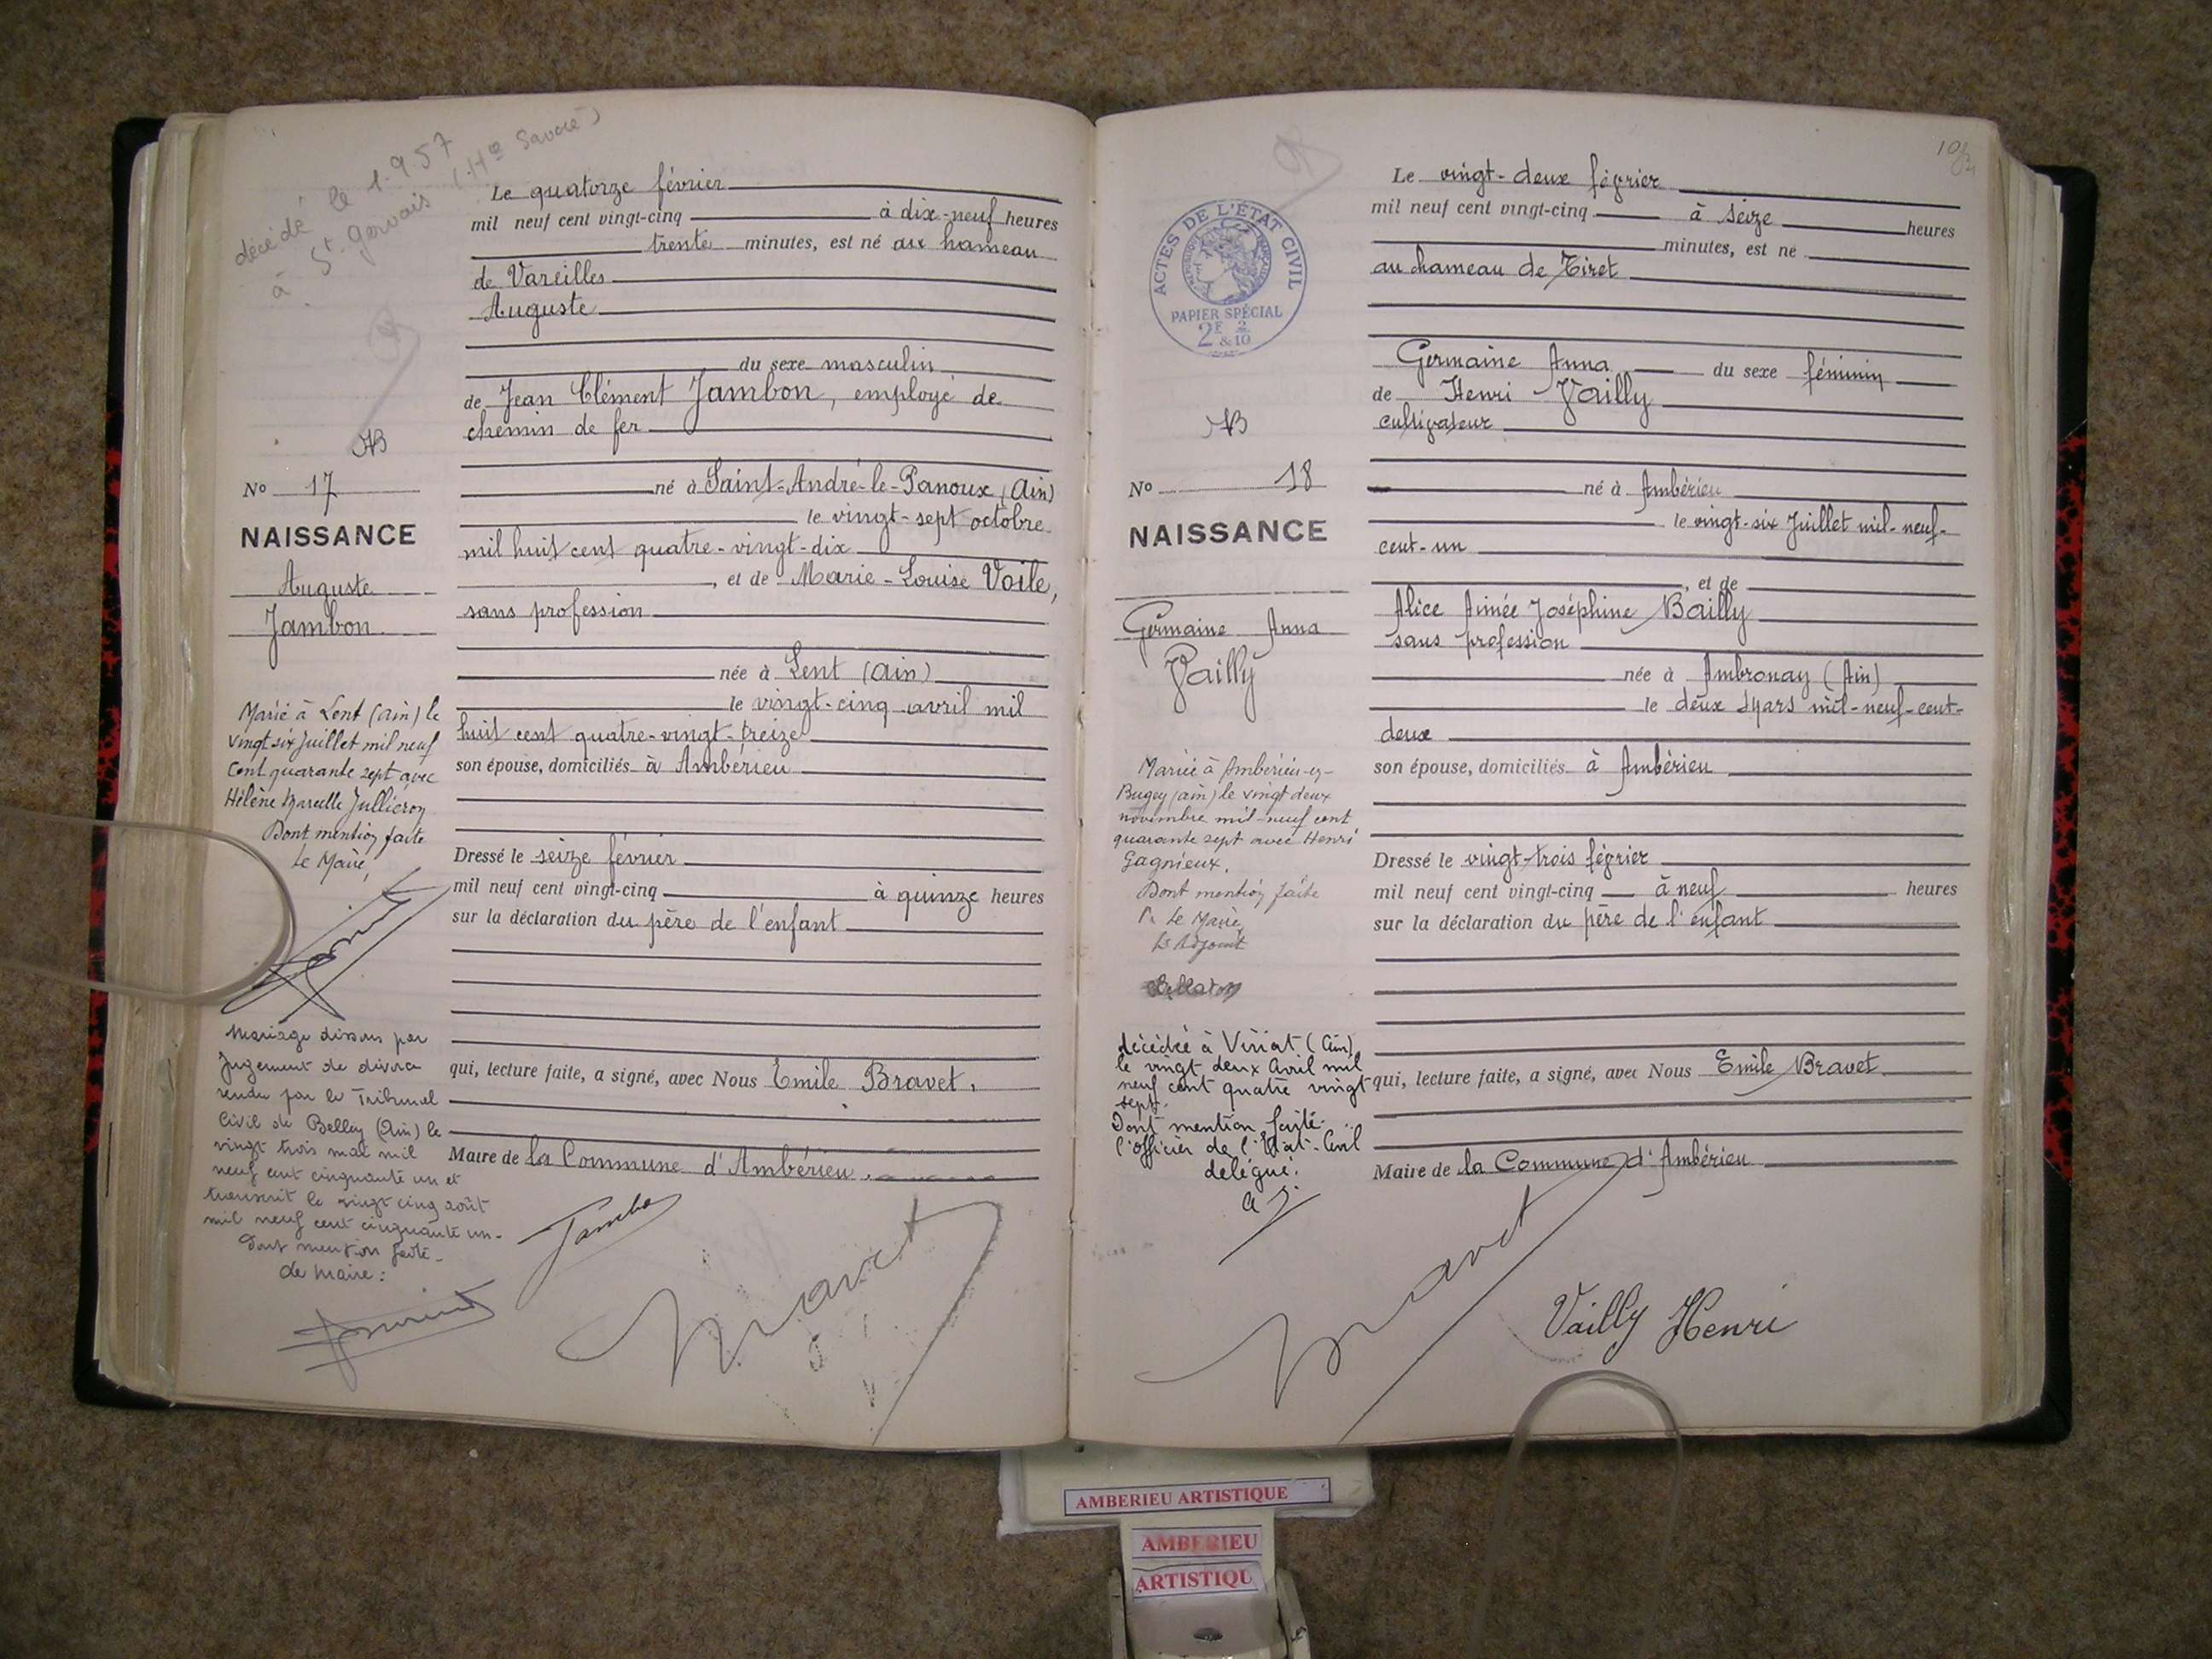 décédé le 1.9.57
à St. Gervais (Hte Savoie)
Le quatorze février
mil neuf cent vingt-cinq à dix-neuf heures
trente minutes, est né au hameau
de Vareilles
Auguste
du sexe masculin
de Jean Clément Jambon, employé de
chemin de fer
né à Saint-André-le-Panoux (Ain)
le vingt-sept octobre
mil huit cent quatre-vingt-dix
, et de Marie-Louise Voile,
sans profession
née à Lent (Ain)
le vingt-cinq avril mil
huit cent quatre-vingt-treize
son épouse, domiciliés à Ambérieu
Dressé le seize février
mil neuf cent vingt-cinq à quinze heures
sur la déclaration du père de l'enfant
qui, lecture faite, a signé, avec Nous Emile Bravet,
Maire de la Commune d'Ambérieu.
Jambon
Bravet
No 17
NAISSANCE
Auguste
Jambon
Marié à Lent (Ain) le
vingt six Juillet mil neuf
Cent quarante sept avec
Hélène Marcelle Jullieron
Dont mention faite
Le Maire,
Mariage dissous par
Jugement de divorce
rendu par le Tribunal
Civil de Belley (Ain) le
vingt trois mai mil
neuf cent cinquante un et
transcrit le vingt cinq août
mil neuf cent cinquante un.
Dont mention faite.
Le Maire:
ACTES DE L'ÉTAT CIVIL
PAPIER SPÉCIAL
2E 2
& 10
Le vingt-deux février
mil neuf cent vingt-cinq à seize heures
minutes, est né
au hameau de Tiret
Germaine Anna du sexe féminin
de Henri Vailly
cultivateur
né à Ambérieu
le vingt-six Juillet mil-neuf-
cent-un
, et de
Alice Aimée Joséphine Bailly
sans profession
née à Ambronay (Ain)
le deux Mars mil-neuf-cent-
deux
son épouse, domiciliés à Ambérieu
Dressé le vingt-trois février
mil neuf cent vingt-cinq à neuf heures
sur la déclaration du père de l'enfant
qui, lecture faite, a signé, avec Nous Emile Bravet
Maire de la Commune d'Ambérieu
Bravet
Vailly Henri
No 18
NAISSANCE
Germaine Anna
Vailly
Mariée à Ambérieu-en-
Bugey (Ain) le vingt deux
novembre mil-neuf cent
quarante sept avec Henri
Gagnieux.
Dont mention faite
Pr Le Maire,
L'Adjoint
décédée à Viriat (Ain)
le vingt deux Avril mil
neuf cent quatre vingt
sept.
Dont mention faite.
l'officier de l'Etat-Civil
délégué.
AMBERIEU ARTISTIQUE
AMBERIEU
ARTISTIQU